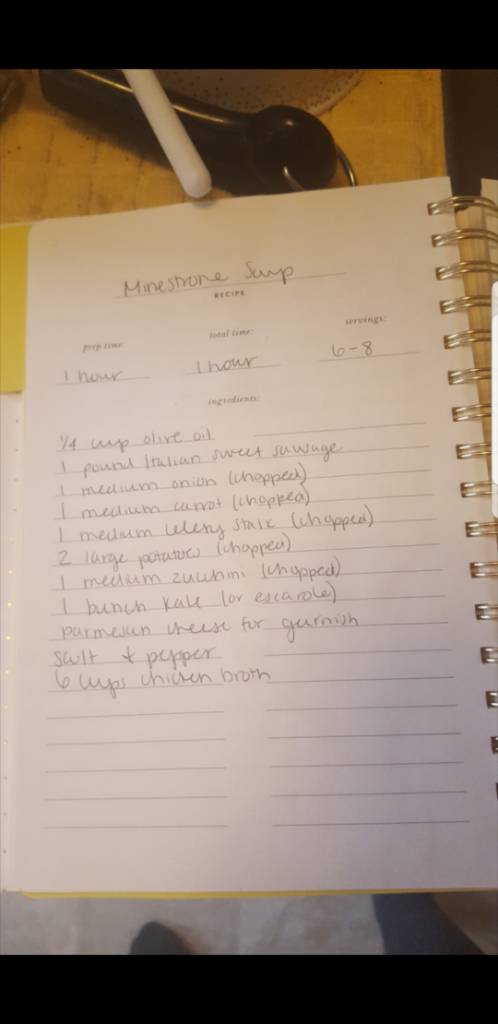 Minestrone Soup
RECIPE
prep time: total time: servings:
1 hour 1 hour 6-8
ingredients:
1/4 cup olive oil
1 pound Italian sweet sausage
1 medium onion (chopped)
1 medium carrot (chopped)
1 medium celery stalk (chopped)
2 large potatoes (chopped)
1 medium zucchini (chopped)
1 bunch kale (or escarole)
parmesan cheese for garnish
salt + pepper
6 cups chicken broth